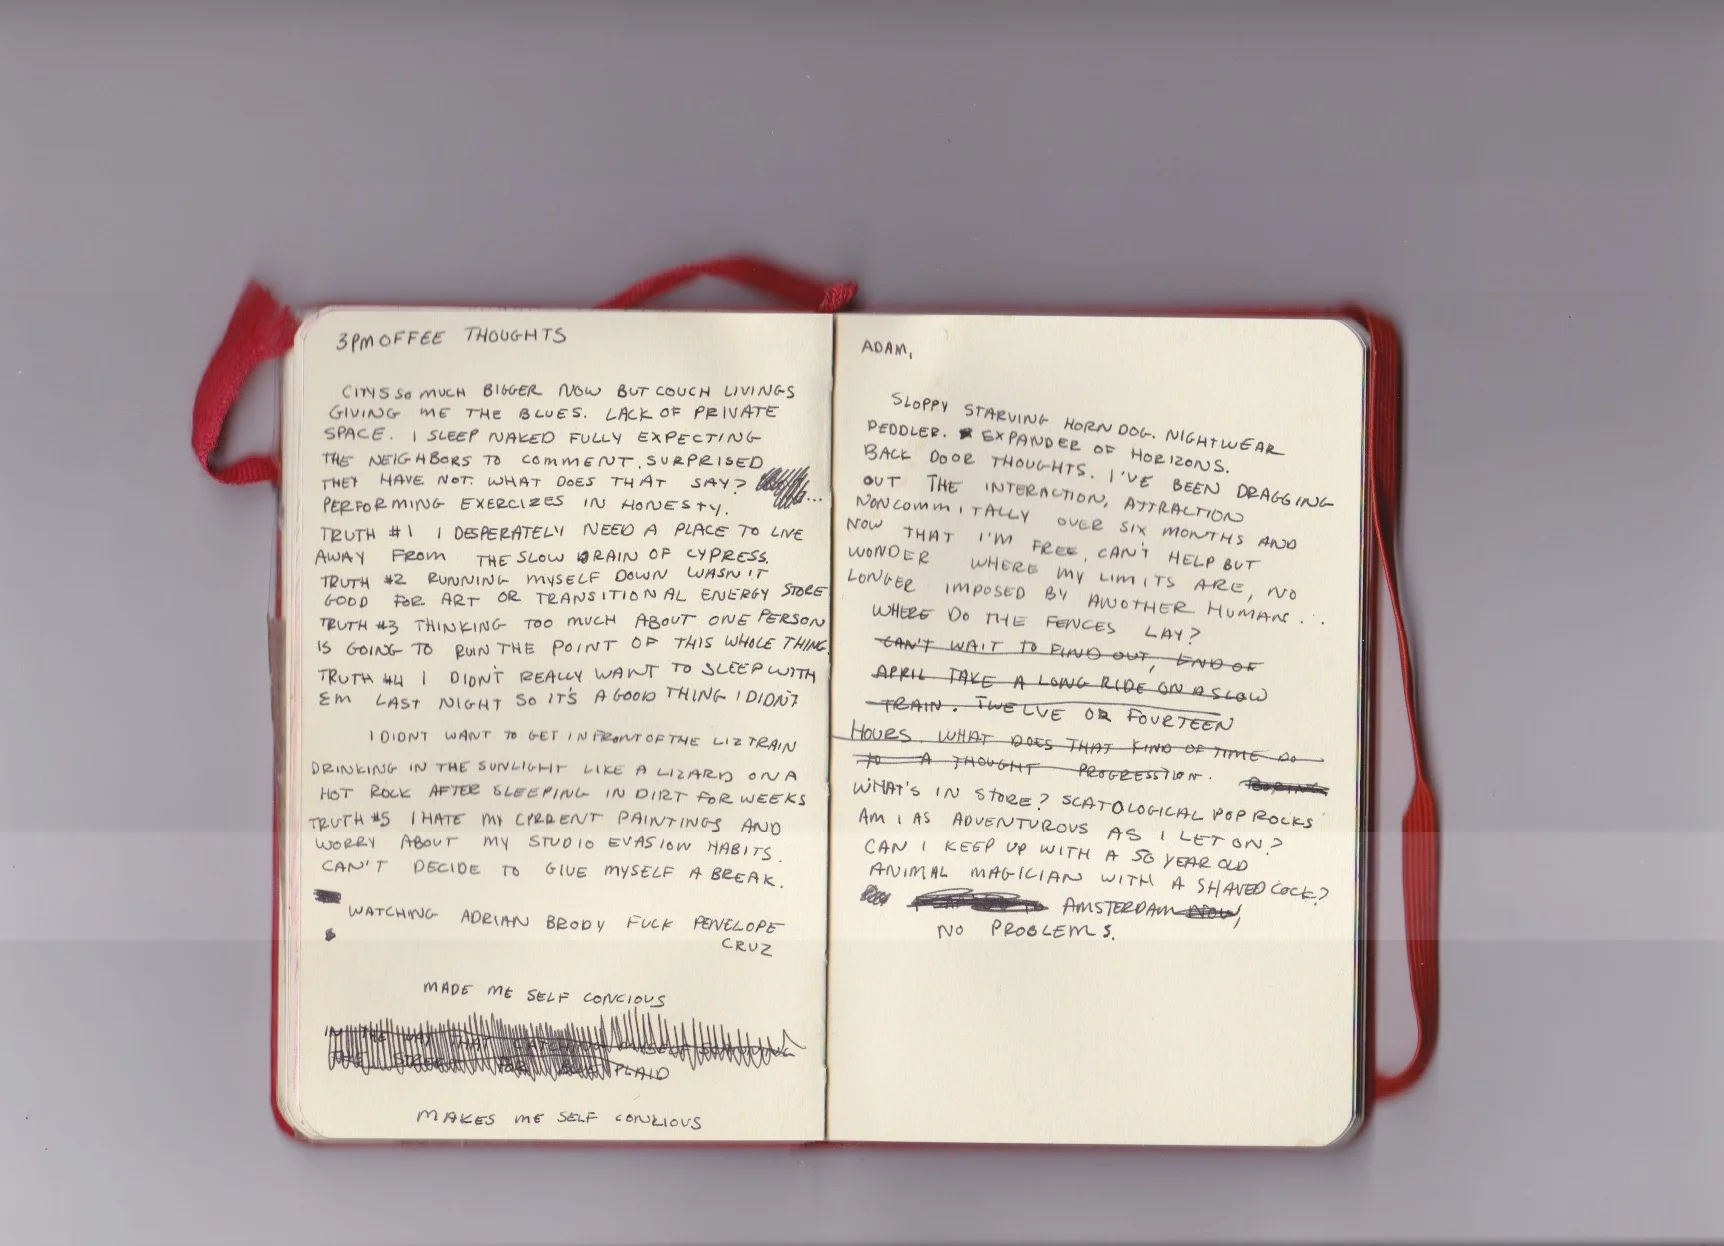 3PMOFFEE THOUGHTS
CITYS SO MUCH BIGGER NOW BUT COUCH LIVINGS
GIVING ME THE BLUES. LACK OF PRIVATE
SPACE. I SLEEP NAKED FULLY EXPECTING
THE NEIGHBORS TO COMMENT. SURPRISED
THEY HAVE NOT. WHAT DOES THAT SAY? ...
PERFORMING EXERCIZES IN HONESTY.
TRUTH #1 I DESPERATELY NEED A PLACE TO LIVE
AWAY FROM THE SLOW DRAIN OF CYPRESS.
TRUTH #2 RUNNING MYSELF DOWN WASN'T
GOOD FOR ART OR TRANSITIONAL ENERGY STORE
TRUTH #3 THINKING TOO MUCH ABOUT ONE PERSON
IS GOING TO RUIN THE POINT OF THIS WHOLE THING.
TRUTH #4 I DIDN'T REALLY WANT TO SLEEP WITH
EM LAST NIGHT SO IT'S A GOOD THING I DIDN'T
I DIDNT WANT TO GET IN FRONT OF THE LIZ TRAIN
DRINKING IN THE SUNLIGHT LIKE A LIZARD ON A
HOT ROCK AFTER SLEEPING IN DIRT FOR WEEKS
TRUTH #5 I HATE MY CURRENT PAINTINGS AND
WORRY ABOUT MY STUDIO EVASION HABITS.
CAN'T DECIDE TO GIVE MYSELF A BREAK.
WATCHING ADRIAN BRODY FUCK PENELOPE
CRUZ
MADE ME SELF CONCIOUS
IN THE WAY THAT
THE STREET FOR PLAID
MAKES ME SELF CONCIOUS
ADAM,
SLOPPY STARVING HORN DOG. NIGHTWEAR
PEDDLER. EXPANDER OF HORIZONS.
BACK DOOR THOUGHTS. I'VE BEEN DRAGGING
OUT THE INTERACTION, ATTRACTION
NONCOMMITALLY OVER SIX MONTHS AND
NOW THAT I'M FREE, CAN'T HELP BUT
WONDER WHERE MY LIMITS ARE, NO
LONGER IMPOSED BY ANOTHER HUMAN...
WHERE DO THE FENCES LAY?
CAN'T WAIT TO FIND OUT, END OF
APRIL TAKE A LONG RIDE ON A SLOW
TRAIN. TWELVE OR FOURTEEN
HOURS. WHAT DOES THAT KIND OF TIME DO
TO A THOUGHT PROGRESSION. BORING
WHAT'S IN STORE? SCATOLOGICAL POP ROCKS
AM I AS ADVENTUROUS AS I LET ON?
CAN I KEEP UP WITH A 50 YEAR OLD
ANIMAL MAGICIAN WITH A SHAVED COCK?
AMSTERDAM NOW,
NO PROBLEMS.